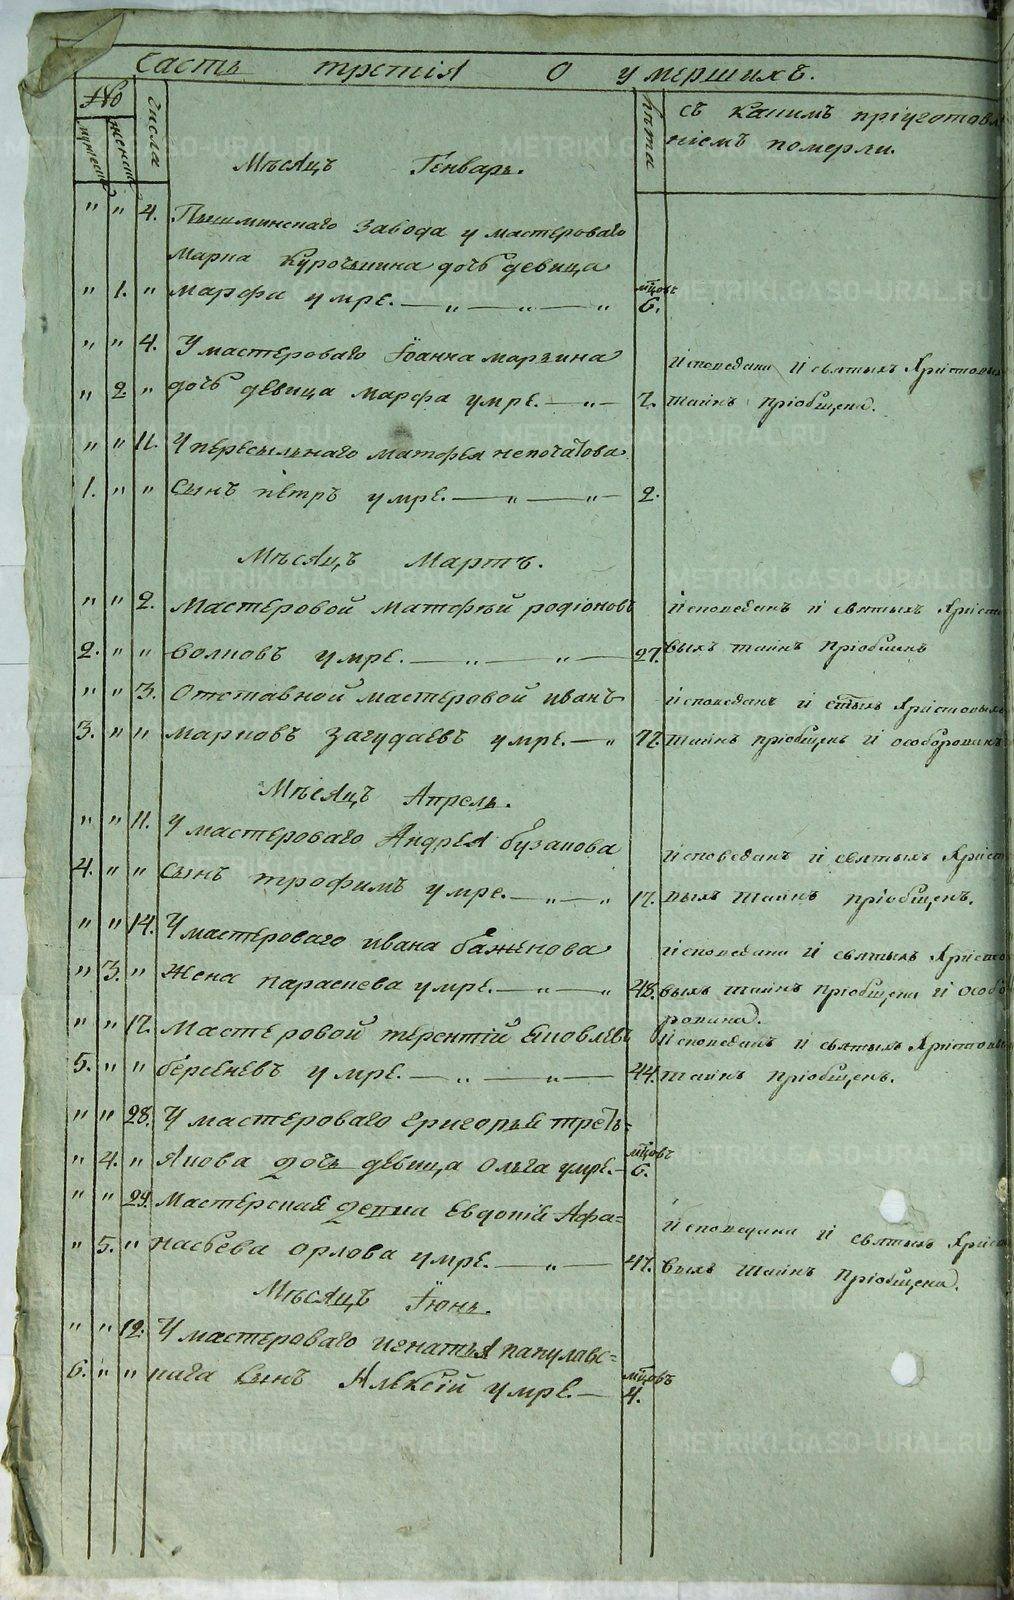 Часть третія О умершихъ.
№ числа лѣта съ какимъ пріуготовле
мужеска женска ніемъ померли.
Мѣсяцъ Генварь.
" " 4. Пышминскаго Завода у мастероваго
Марка Курочкина дочь девица
" 1. " марфа умре. — " — " — " мцовъ 6.
" " 4. У мастероваго Іоанна марзина Исповедана И святыхъ Христовыхъ
" 2 " дочь девица марфа умре. — " — 7. тайнъ пріобщена.
" " 11. У пересыльнаго матфея непочатова
1. " " сынъ петръ умре. — " — " — 2.
Мѣсяцъ Мартъ.
" " 2. Мастеровой матфѣй родіоновъ Исповеданъ И святыхъ Христо
2. " " волковъ умре. — " — " — 27. выхъ тайнъ пріобщенъ
" " 3. Отставной мастеровой иванъ Исповеданъ И стыхъ Христовыхъ
3. " " марковъ Загудаевъ умре. — " 77. тайнъ пріобщенъ И особорованъ
Мѣсяцъ Апрель.
" " 11. У мастероваго Андрея бузанова Исповеданъ И святыхъ Христо
4. " " сынъ трофимъ умре. — " — " 17. выхъ тайнъ пріобщенъ.
" " 14. У мастероваго ивана баженова Исповедана И святыхъ Христо
" 3. " Жена параскева умре. — " — " 48. выхъ тайнъ пріобщена И особо
рована.
" " 17. Мастеровой терентій яковлевъ Исповеданъ И святыхъ Христовы
5. " " берсеневъ умре. — " — " — 44. тайнъ пріобщенъ.
" " 28. У мастероваго григорья треть=
" 4. " якова дочь девица Ольга умре. — мцовъ 6.
" " 29. Мастерская Жепка Евдокій Афа= Исповедана И святыхъ Христо
" 5. " насьева орлова умре. — " — 47. выхъ тайнъ пріобщена.
Мѣсяцъ Іюнь.
" " 12. У мастероваго игнатья папулавс=
6. " " кага сынъ Алексій умре. — мцовъ 4.
METRIKI.GASO-URAL.RU